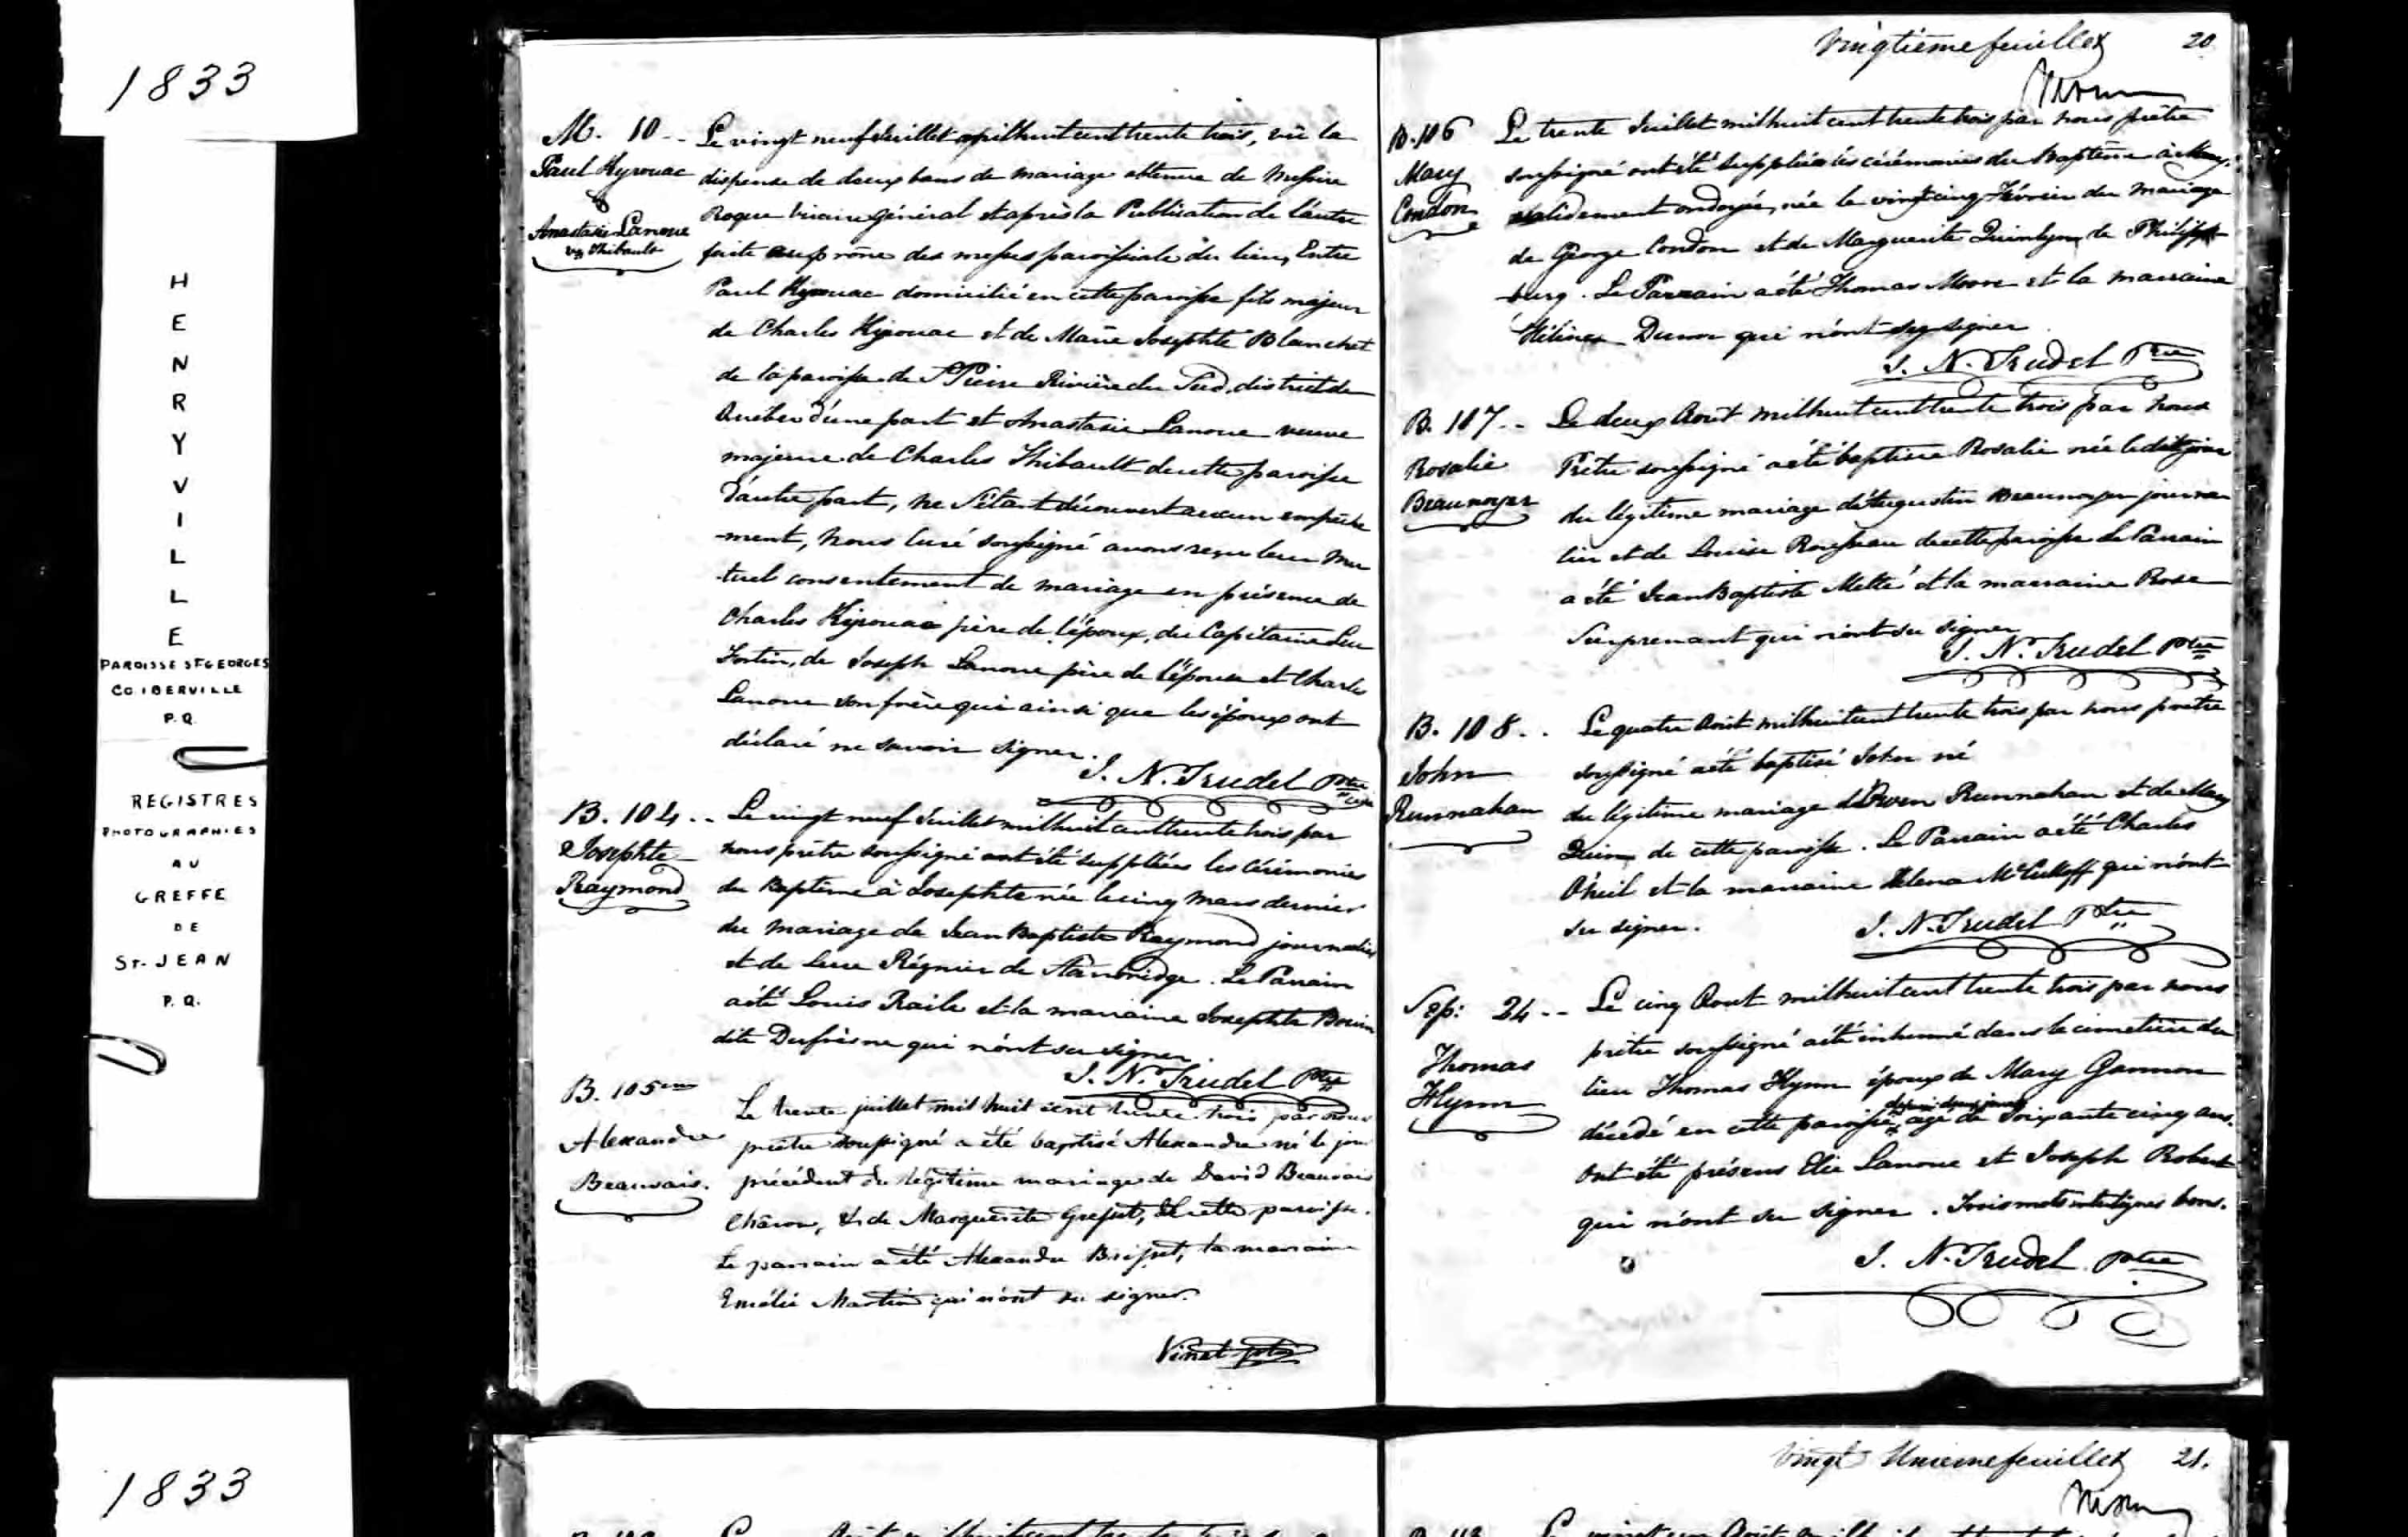 1833
HENRYVILLE
PAROISSE ST GEORGES
CO. IBERVILLE
P.Q.
REGISTRES
PHOTOGRAPHIES
AU
GREFFE
DE
ST-JEAN
P.Q.
1833
M. 10 --
Paul Kyrouac
&
Anastasie Lanoue
vve Thibault
Le vingt neuf Juillet mil huit cent trente trois, vu la
dispense de deux bans de mariage obtenue de Messire
Roque Vicaire général et après la Publication de l'autre
faite au prône des messes paroissiale du lieu, Entre
Paul Kyrouac domicilié en cette paroisse fils majeur
de Charles Kyrouac et de Marie Josephte Blanchet
de la paroisse de St Pierre Rivière du Sud, district de
Québec d'une part et Anastasie Lanoue veuve
majeure de Charles Thibault de cette paroisse
d'autre part, ne s'étant découvert aucun empêche
-ment, Nous Curé soussigné avons reçu leur mu
-tuel consentement de mariage en présence de
Charles Kyrouac père de l'époux, du Capitaine
Fortin, de Joseph Lanoue père de l'épouse et Charles
Lanoue son frère qui ainsi que les époux ont
déclaré ne savoir signer.
J. N. Trudel Ptre
B. 104 --
Josephte
Raymond
Le vingt neuf Juillet mil huit cent trente trois par
nous prêtre soussigné ont été suppléées les Cérémonies
du Baptême à Josephte née le cinq Mars dernier
du mariage de Jean Baptiste Raymond journalier
et de Luce Régnier de Stanbridge. Le Parrain
a été Louis Raile et la marraine Josephte
dite Dufrèsne qui n'ont su signer.
J. N. Trudel Ptre
B. 105eme
Alexandre
Beauvais.
Le trente juillet mil huit cent trente-trois par nous
prêtre soussigné a été baptisé Alexandre né le jour
précédent du légitime mariage de David Beauvais
, & de Marguerite, de cette paroisse.
Le parrain a été Alexandre, la marraine
Emélie Martin qui n'ont su signer.
Vinet ptre
Vingtième feuillet 20
B. 106
Mary
Condon
Le trente Juillet mil huit cent trente trois par nous prêtre
soussigné ont été suppléées les cérémonies du Baptême à Mary,
validement ondoyée, née le vingt cinq Février du mariage
de George Condon et de Marguerite Quinlyn de Philips
-burg. Le Parrain a été Thomas Moore et la marraine
Hélène qui n'ont su signer
J. N. Trudel Ptre
B. 107 --
Rosalie
Beaunoyer
Le deux Août mil huit cent trente trois par nous
Prêtre soussigné a été baptisée Rosalie née le dit jour
du légitime mariage d'Augustin Beaunoyer journa
lier et de Louise Rousseau de cette paroisse Le Parrain
a été Jean Baptiste Metté et la marraine Rose
Surprenant qui n'ont su signer
J. N. Trudel Ptre
B. 108 --
John
Runnahan
Le quatre Août mil huit cent trente trois par nous prêtre
soussigné a été baptisé John né
du légitime mariage d'Owen Runnahan et de Mary
Quinn de cette paroisse. Le Parrain a été Charles
O'neil et la marraine Helena qui n'ont
su signer.
J. N. Trudel Ptre
Sep: 24 --
Thomas
Flynn
Le cinq Août mil huit cent trente trois par nous
prêtre soussigné a été inhumé dans le cimetière du
lieu Thomas Flynn époux de Mary Gannon
depuis deux jours
décédé en cette paroisse agé de soixante cinq ans.
Ont été présens Elie Lanoue et Joseph Robert
qui n'ont su signer. Trois mots interlignes bons.
J. N. Trudel Ptre
Vingt Unieme feuillet 21.